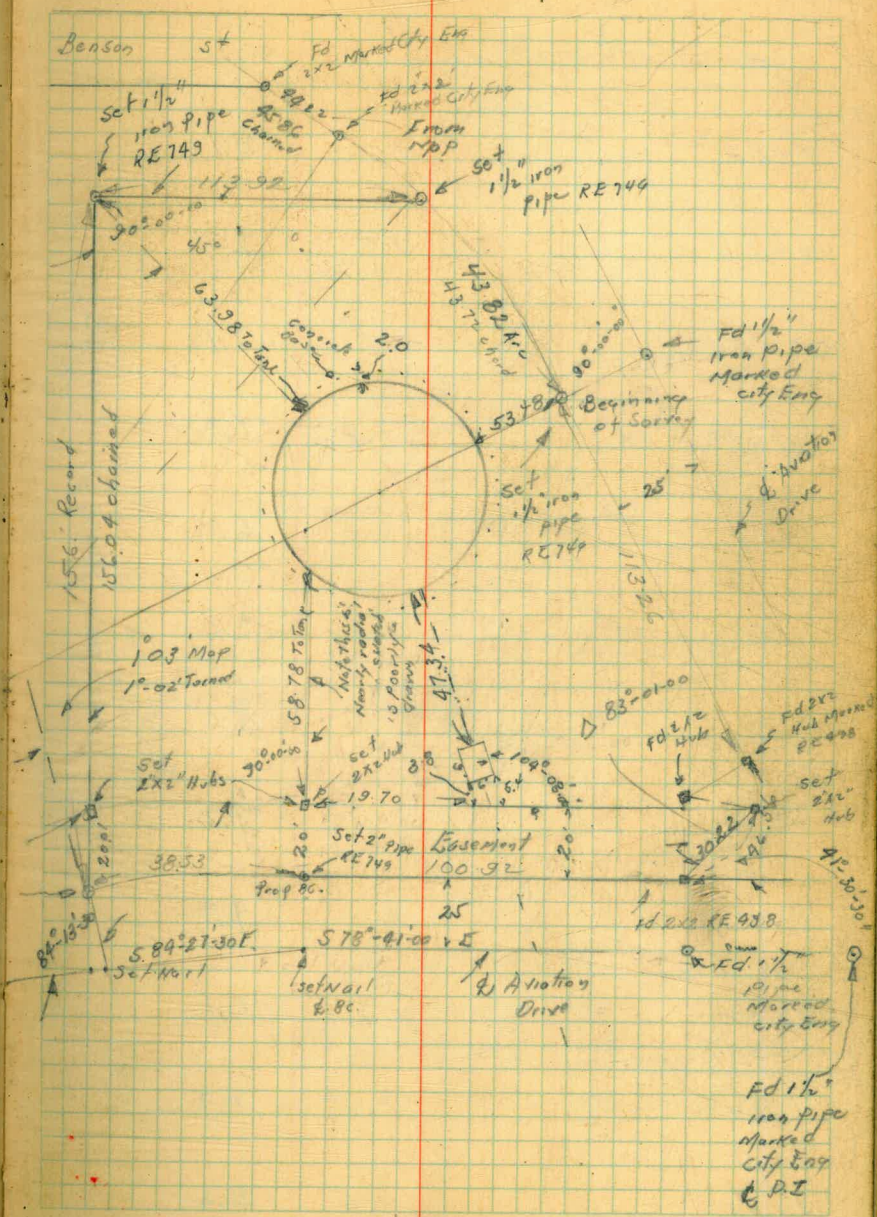 Benson St
Fd
2x2 Marked City Eng
Fd 2"x2"
Marked City Eng
From
Map
Set 1 1/2"
iron pipe
RE 749
44.22
45.86
chained
Set
1 1/2" iron
pipe RE 749
113.92
90°-00-00
45°
63.98 To Tank
concrete
Base
2.0
43.82 Arc
43.72 chord
90°-00-00"
Fd 1 1/2"
iron pipe
Marked
city Eng
53.48
Beginning
of Survey
Set
1 1/2" iron
pipe
RE 749
25'
℄ Aviation
Drive
156.' Record
156.04 chained
113.26
1°03' Map
1°-02' Turned
58.78 To Tank
Note this is
Nearly radial
is Poorly
drawn
47.34
83°-01-00
Fd 2x2
Hub
Fd 2x2
Hub Marked
RE 498
Set
2"x2"
Hub
Set
2"x2" Hubs
90°-00-00
Set
2x2 Hub
3.8
6.4
104°-08
19.70
20'
20'
Set 2" Pipe
RE 749
Easement
100.92
30.22
20'
38.53
Prop BC.
25
Fd 2x2 RE 498
41°-30'-30"
84°-13'-30
S. 84°-27'-30 E.
S 78°-41-00 E
Set Nail
Set Nail
℄ BC.
℄ Aviation
Drive
Fd. 1 1/2"
Pipe
Marked
city Eng
Fd 1 1/2"
iron pipe
Marked
City Eng
℄ P.I